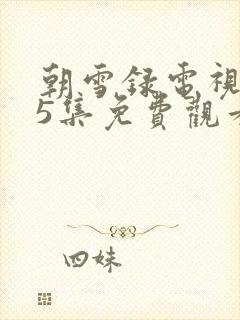 朝雪録電視
5集免費觀
四妹